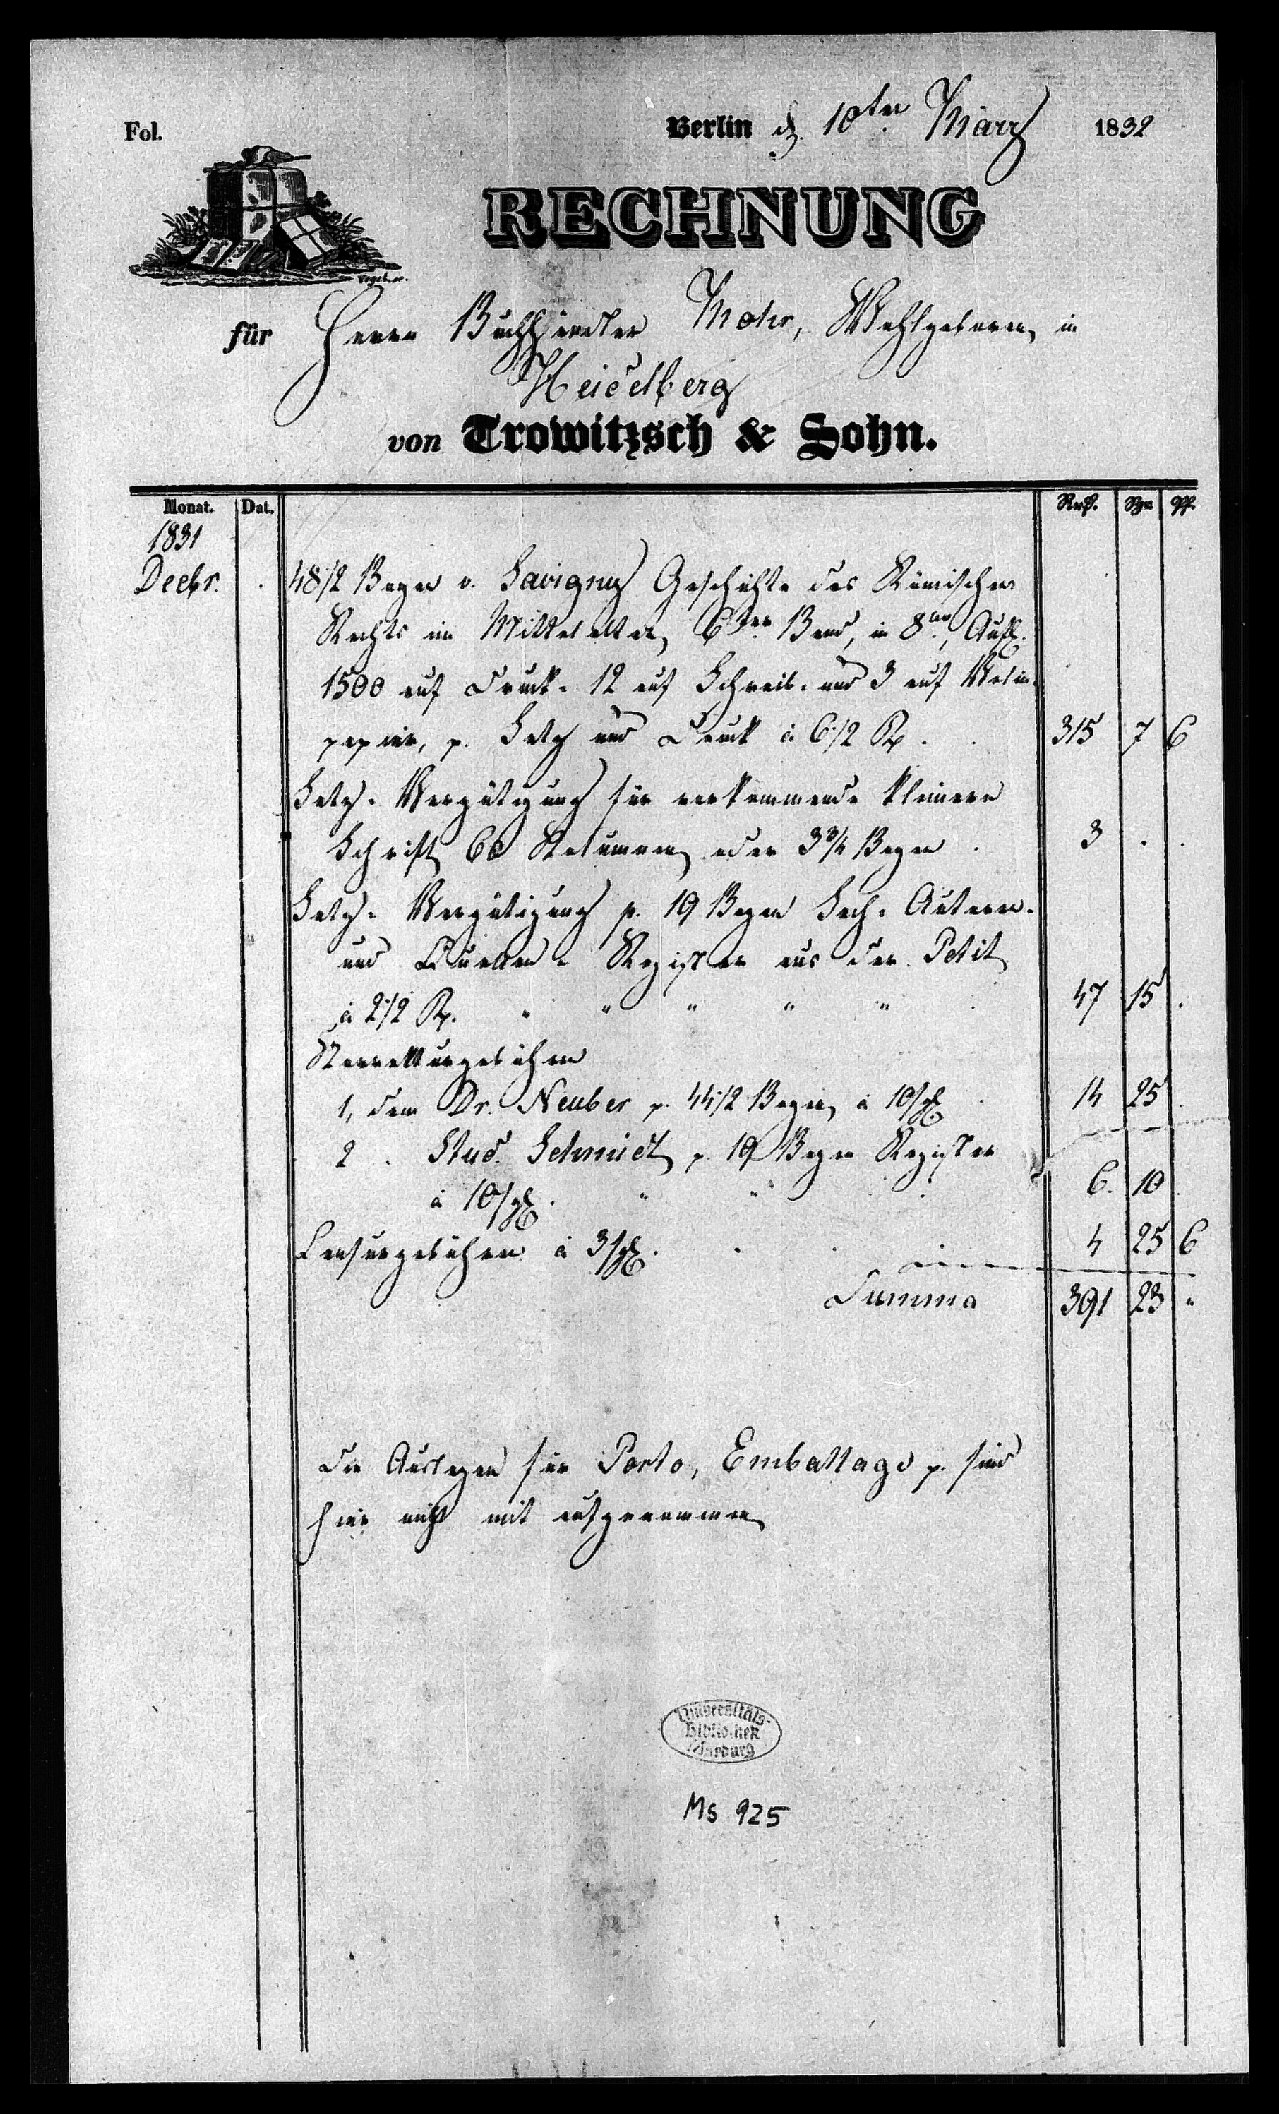 Fol.
Berlin d. 10ten März 1832
RECHNUNG
für Herrn Buchhändler Mohr, Wohlgeboren, in
Heidelberg
von Trowitzsch & Sohn.
Monat. Dat. Rthlr. Sgr. Pf.
1831
Decbr. 48 1/2 Bogen v. Savigny Geschichte des Römischen
Rechts im Mittelalter, 6ter Band, in 8vo, Aufl.
1500 auf Druck- 12 auf Schreib- und 3 auf Velin-
papier, p. Satz und Druck à 6 1/2 R. 315 7 6
Satz-Vergütigung für vorkommende kleinere
Schrift, 60 Kolumnen, oder 3 3/4 Bogen 3 . .
Satz-Vergütigung p. 19 Bogen Sach- Autoren-
und Quellen-Register aus der Petit
à 2 1/2 R. " " " " 47 15 .
Korrekturgebühren
1, dem Dr. Neuber p. 44 1/2 Bogen, à 10 sg 14 25 .
2 . Stud. Schmidt, p. 19 Bogen Register
à 10 sg. " " 6. 10 .
Censurgebühren à 3 sg. 4 25 6
Summa 391 23 "
Die Auslagen für Porto, Emballage p. sind
hier nicht mit aufgenommen
Universitäts-
Bibliothek
Marburg
Ms 925